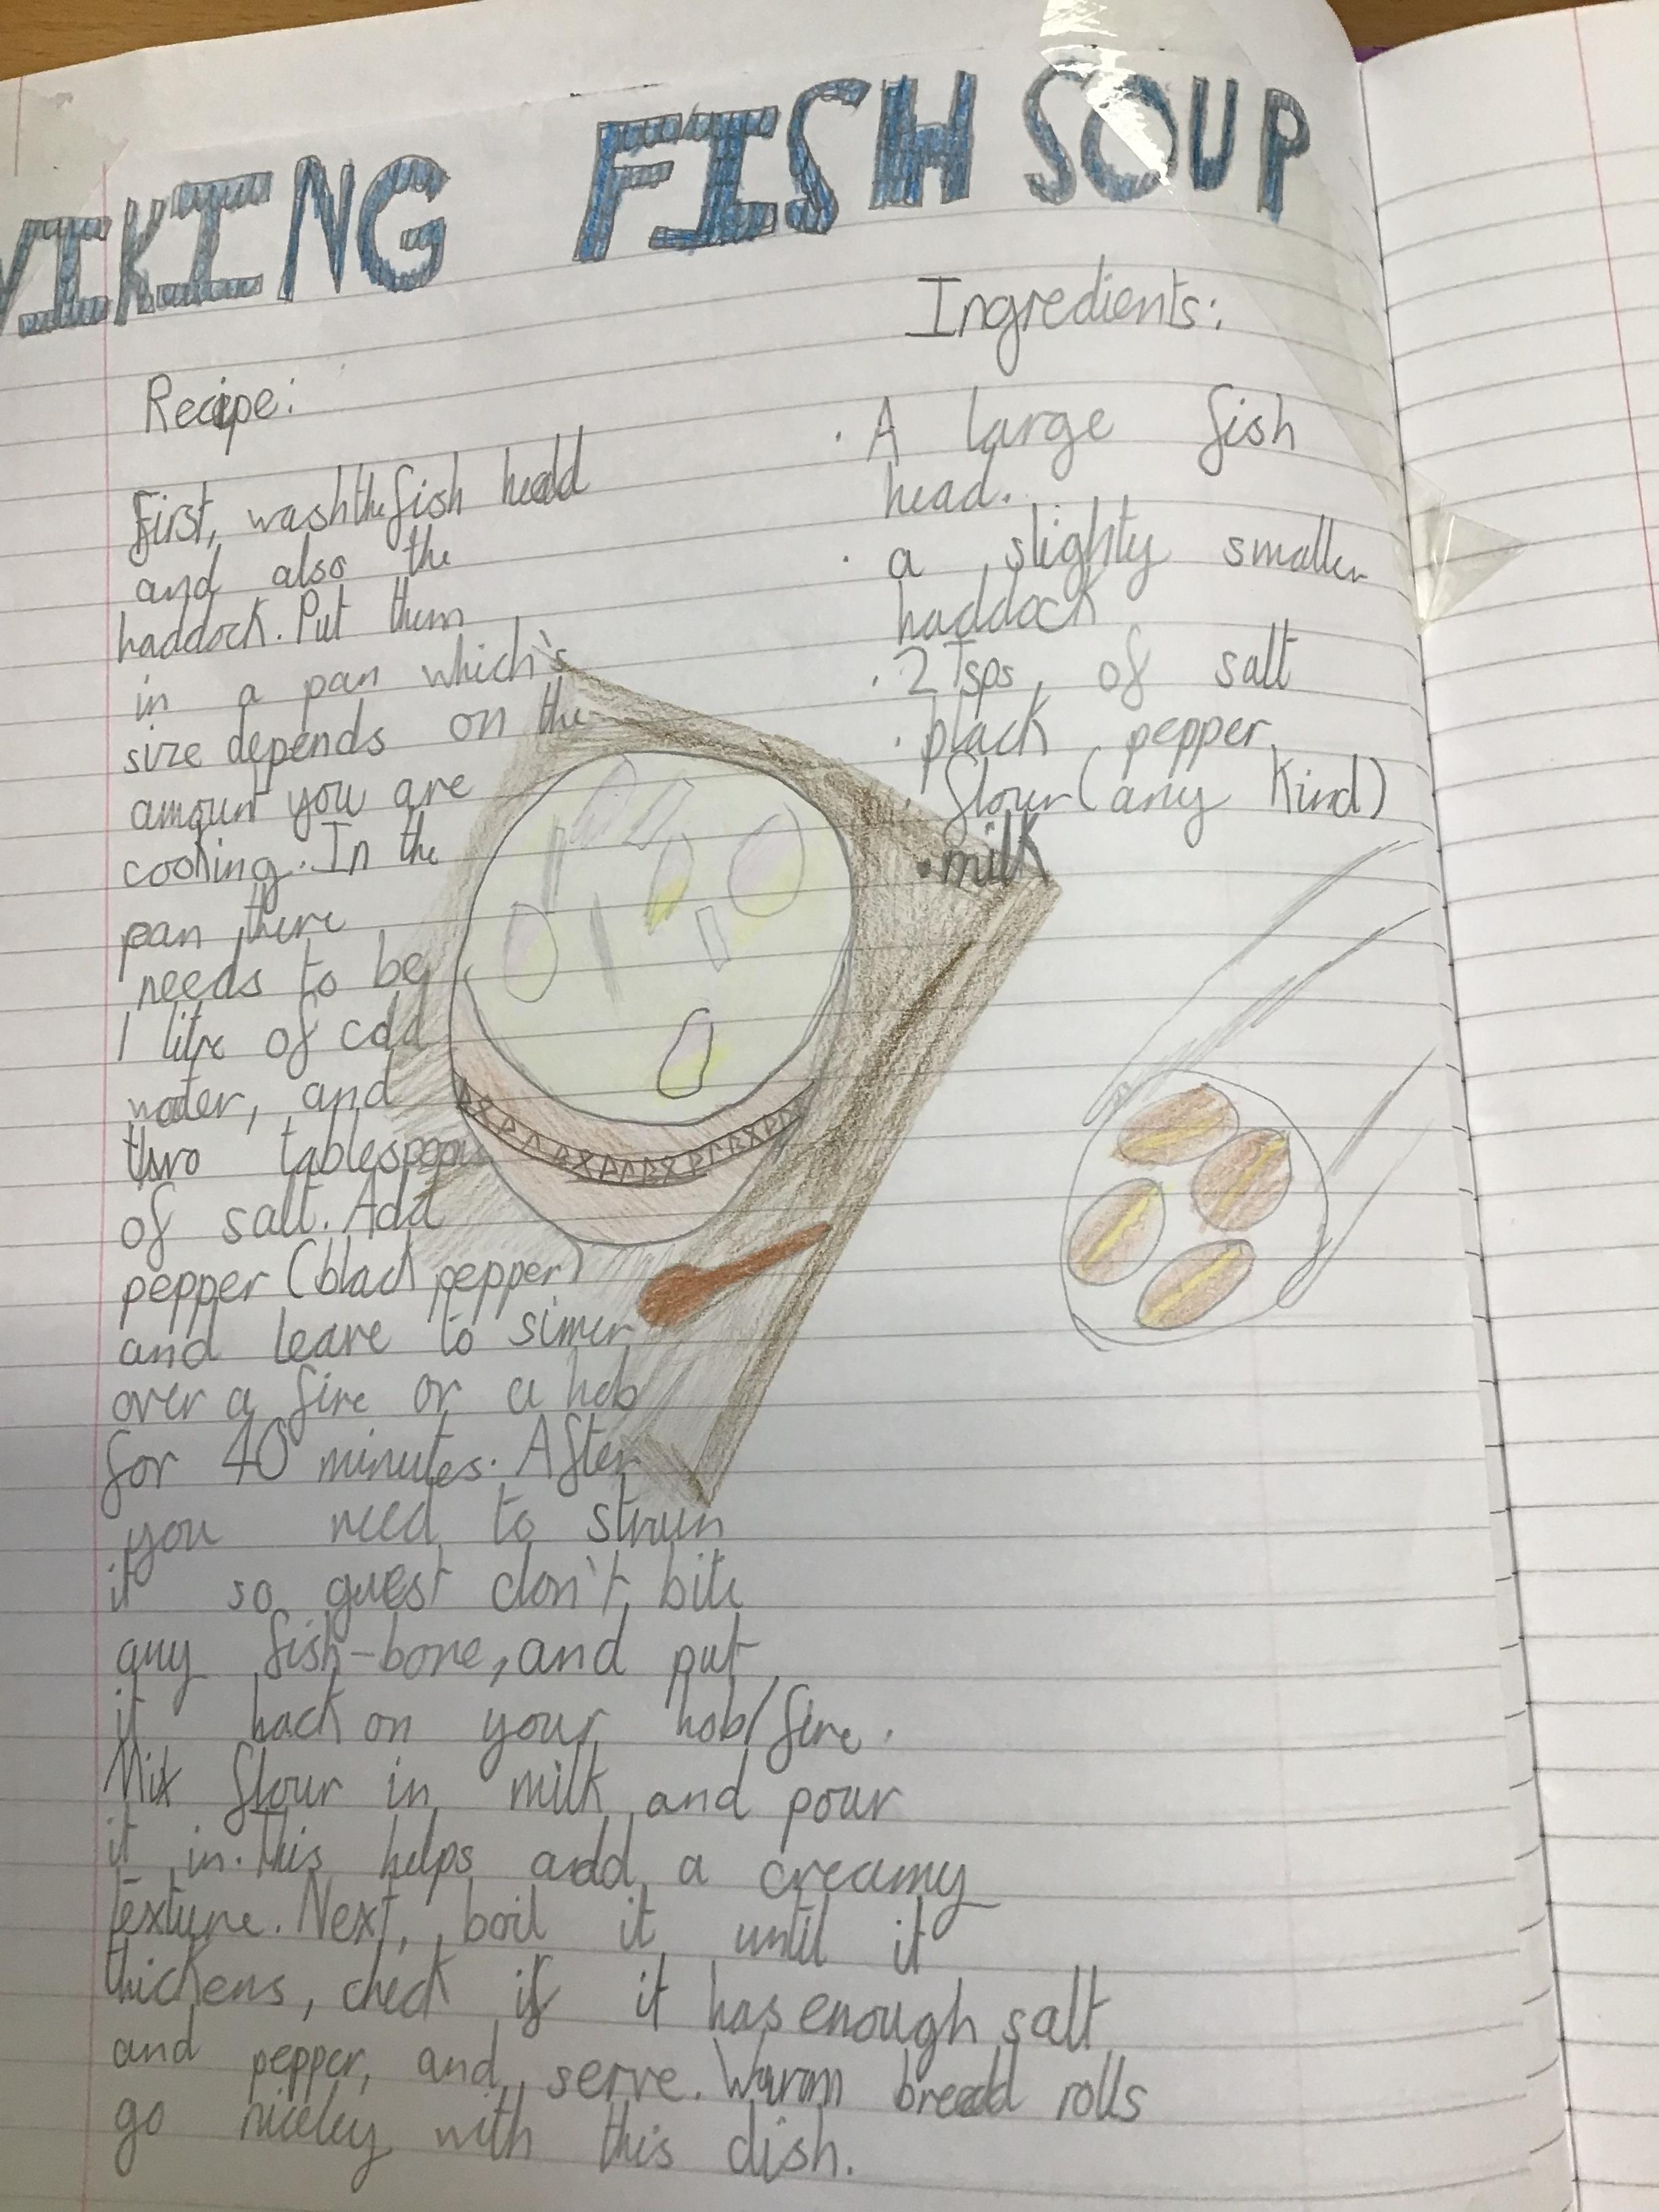 VIKING FISH SOUP
Recipe:
First, wash the fish head
and also the
haddock. Put them
in a pan which's
size depends on the
amount you are
cooking. In the
pan there
needs to be
1 litre of cold
water, and
two tablespoons
of salt. Add
pepper (black pepper)
and leave to simer
over a fire or a hob
for 40 minutes. After
you need to strain
it so guest don't bite
any fish-bone, and put
it back on your hob/fire.
Mix flour in milk and pour
it in. This helps add a creamy
texture. Next, boil it until it
thickens, check if it has enough salt
and pepper, and serve. Warm bread rolls
go niceley with this dish.
Ingredients:
· A large fish
head.
· a slighty smaller
haddock
· 2 Tsps, of salt
· black pepper,
· flour (any kind)
· milk